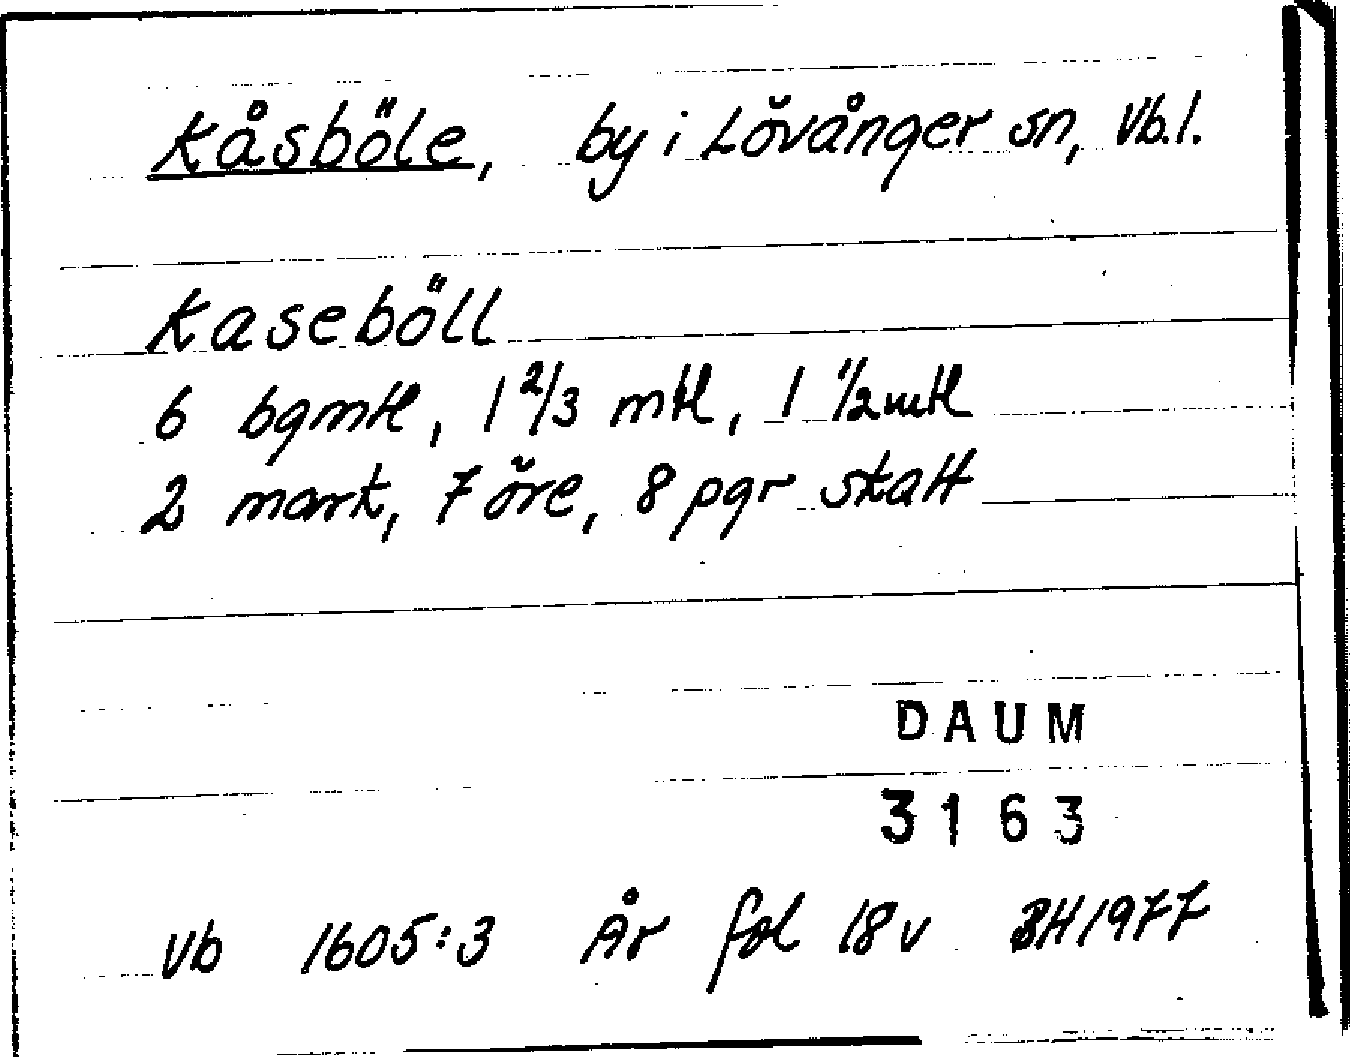 Kåsböle, by i Lövånger sn, Vb.l.
Kaseböll
6 bgmtl, 1 2/3 mtl, 1 1/2 mtl
2 mark, 7 öre, 8 pgr skatt
DAUM
3163
Vb 1605:3 År fol 18v BH 1977